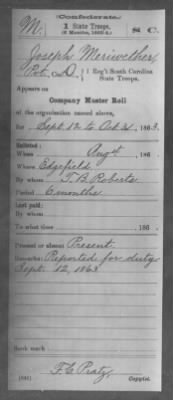 (Confederate.)
M. 1 State Troops, S C.
(6 Months, 1863-4.)
Joseph Meriwether
Pvt. D., 1 Reg't South Carolina State Troops.
Appears on
Company Muster Roll
of the organization named above,
for Sept. 12 to Oct 31, 1863.
Enlisted:
When Aug 186
Where Edgefield
By whom T. B. Roberts
Period 6 months
Last paid:
By whom
To what time 186
Present or absent Present
Remarks: Reported for duty
Sept. 12, 1863
Book mark:
F. C. Pratz
Copyist.